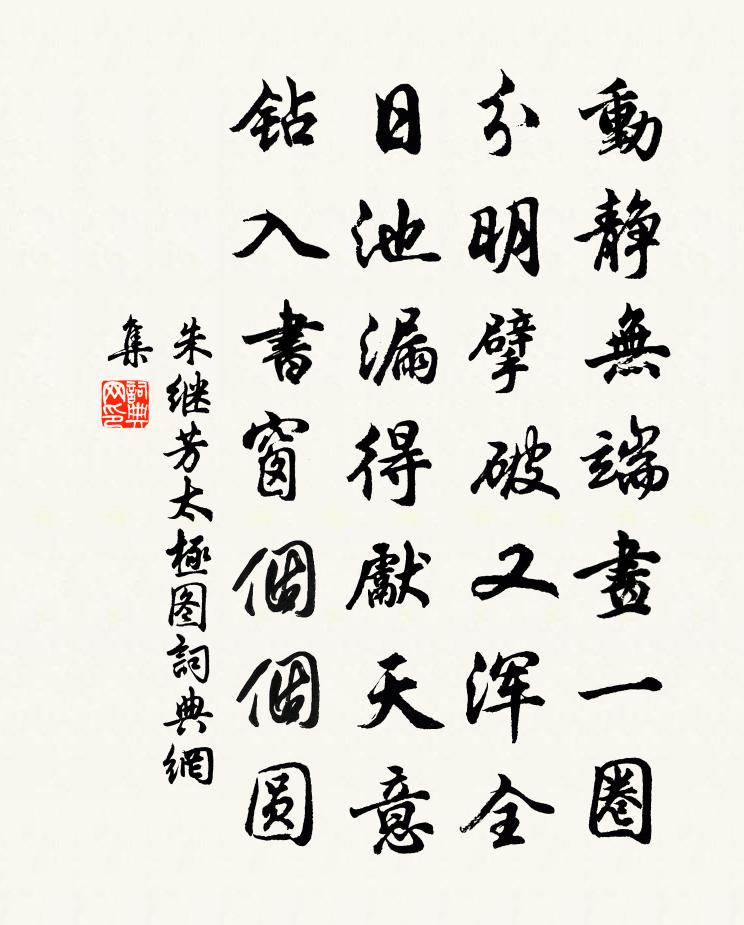 動靜無端畫一圈
分明擘破又浑全
日池漏得獻天意
钻入書窗個個圆
朱继芳太極图詞典網
集
詞典网印